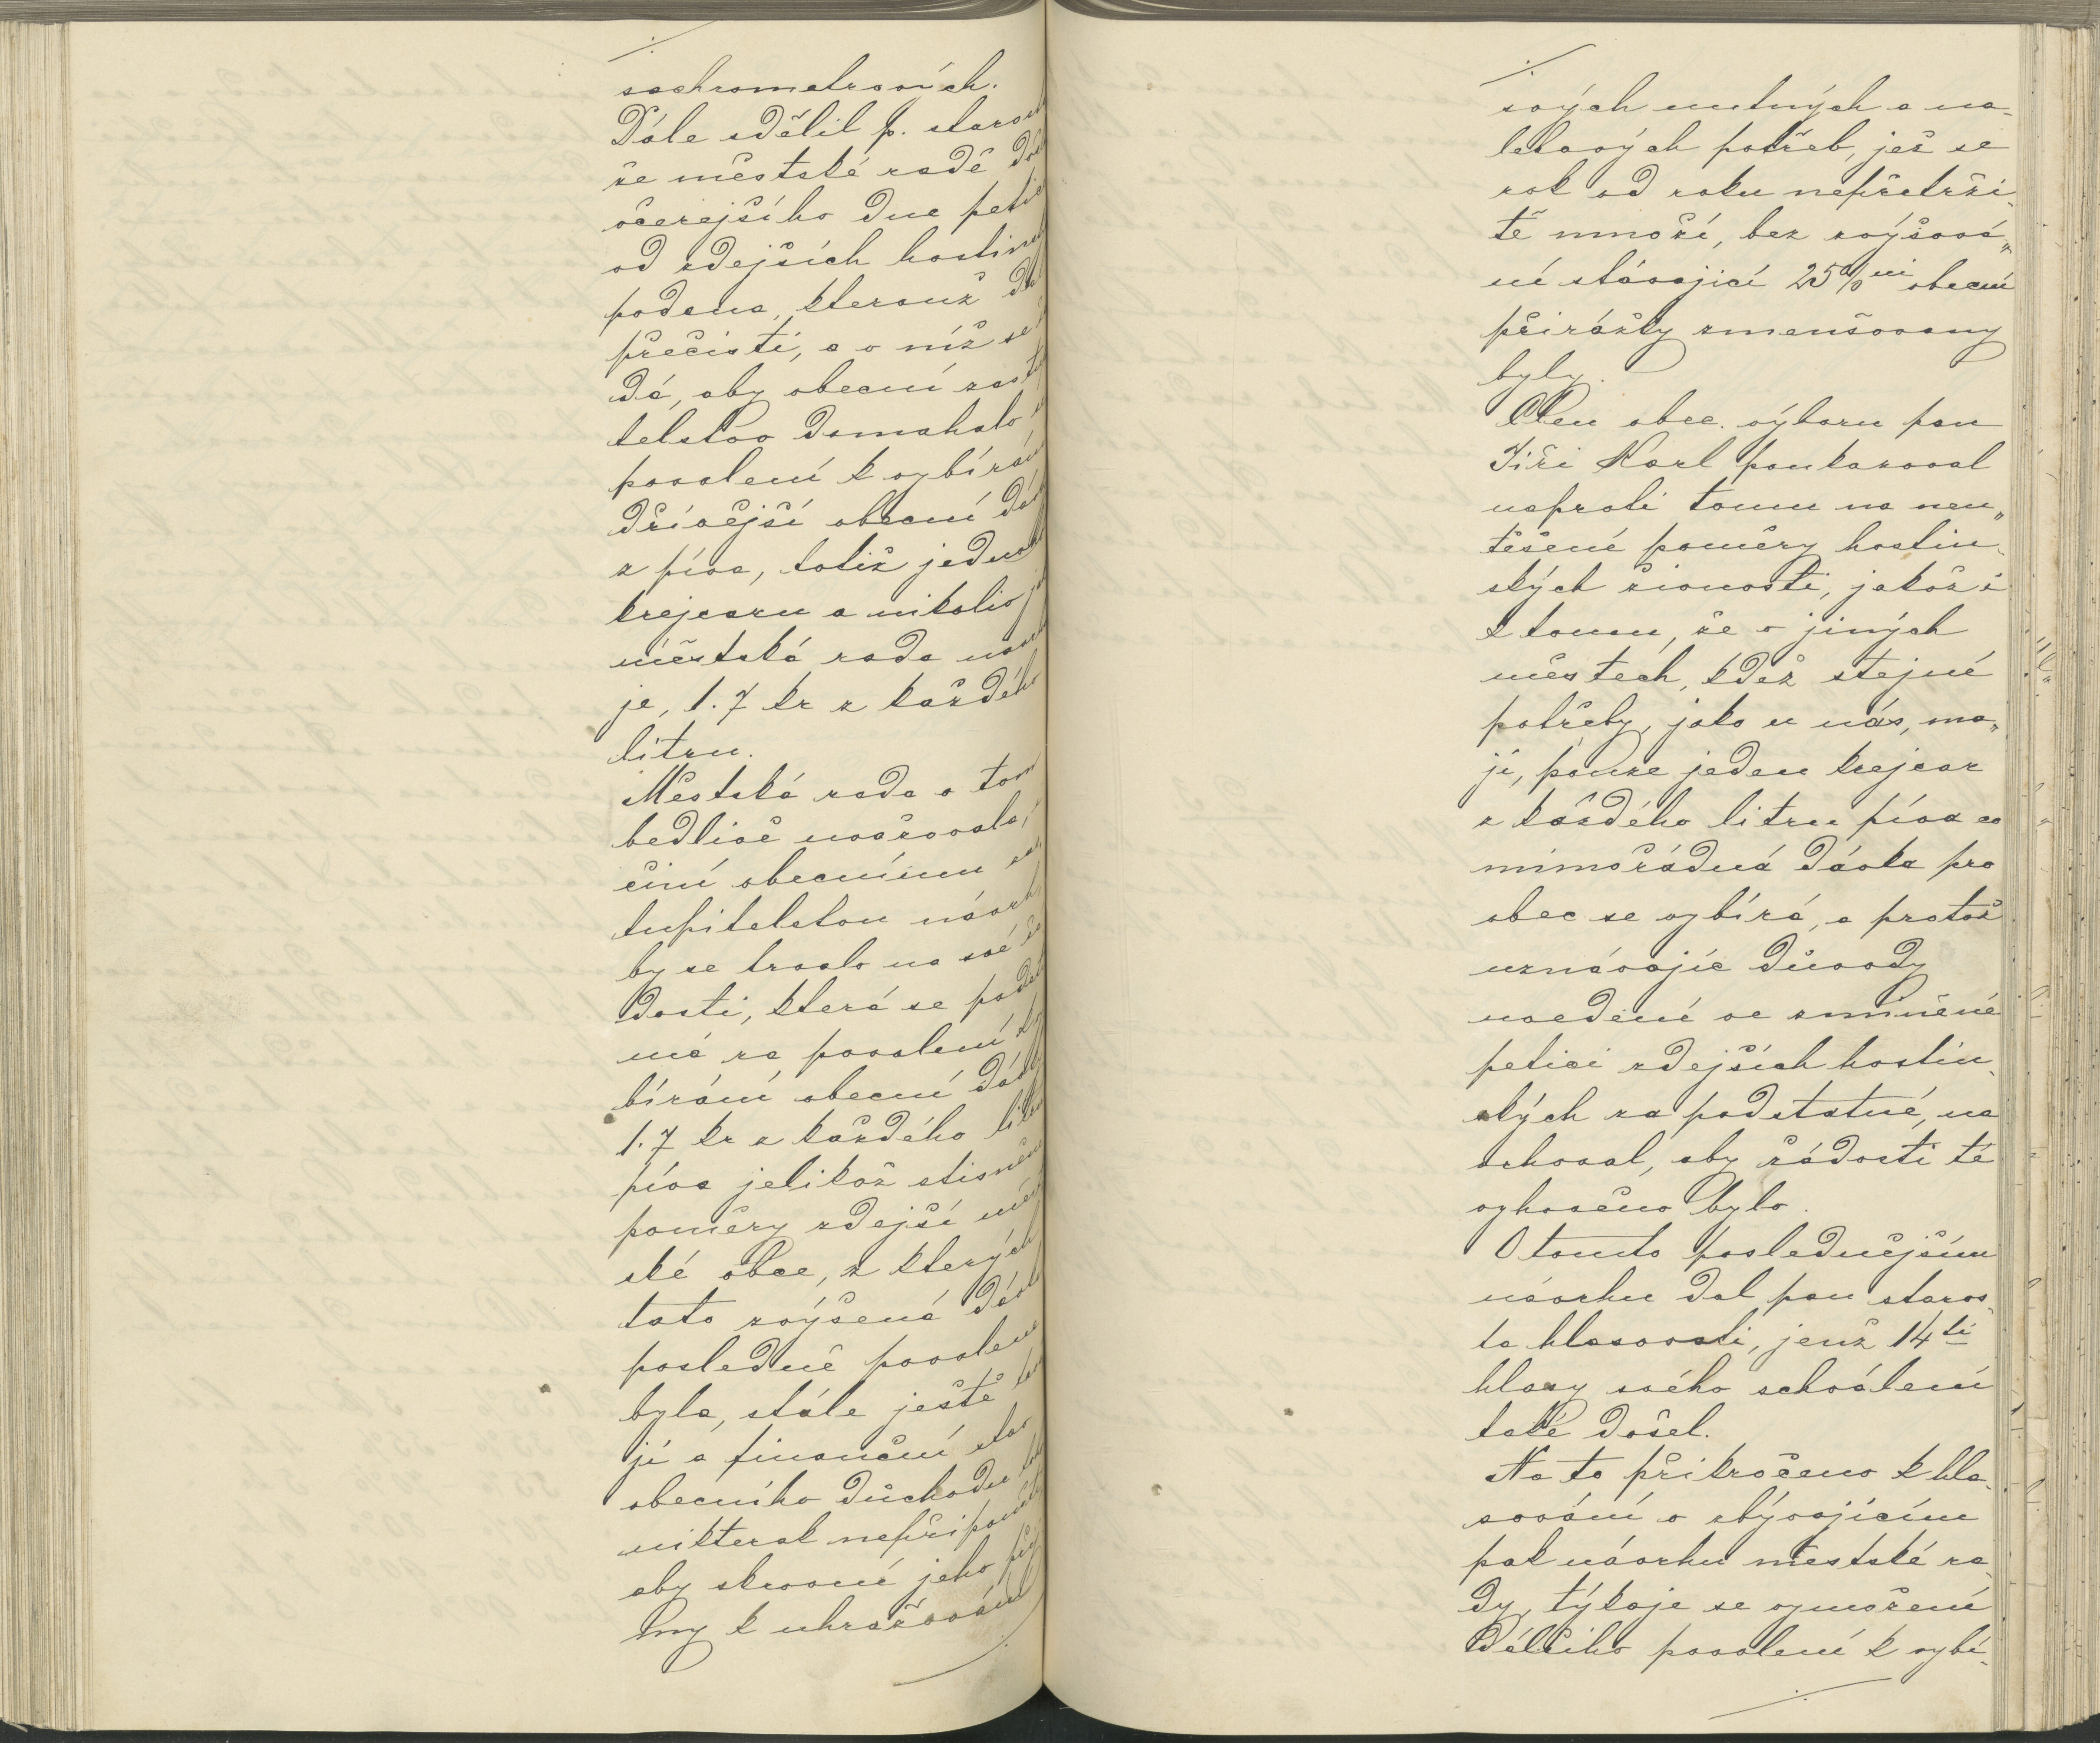 sachrometrových.
Dále sdělil p. staros
že městské radě do
včerejšího dne petic
od zdejších hostins
podána, kterouž dá
přečísti, a v níž se
dá, aby obecní zast
telstvo domahalo
povolení k vybírán
dřívější obecní dá
z piva, totiž jedno
krejcaru a nikoliv j
městská rada navrh
je, 1.7 kr z každého
litru.
Městská rada o tom
bedlivě uvažovala,
činí obecnímu za
tupitelstvu návrh
by se trvalo na své žá
dosti, která se podat
má za povolení k
bírání obecní dáv
1.7 kr z každého litru
piva jelikož stisněn
poměry zdejší měst
ské obce, z kterých
tato zvýšená dáv
posledně povolena
byla, stále ještě trv
jí a finanční stav
obecního důchodu
nikterak nepřipouští
aby skrovné jeho pří
my k uhražování
svých nutných a na-
letavých potřeb, jež se
rok od roku nepřetrži-
tě množí, bez zvýšová„
ní stávající 25% ní obecní
přirážky zmenšovany
byly.
Člen obec. výboru pan
Jiří Karl poukazoval
naproti tomu na neu„
těšené poměry hostin-
ských živností, jakož i
k tomu, že v jiných
městech, kdež stejné
potřeby, jako u nás, ma„
jí, pouze jeden krejcar
z každého litru piva co
mimořádná dávka pro
obec se vybírá, a protož
uznávajíc důvody
uvedené ve zmíněné
petici zdejších hostin-
ských za podstatné, na
vrhoval, aby žádosti té
vyhověno bylo.
O tomto poslednějším
návrhu dal pan staros-
ta hlasovati, jenž 14ti
hlasy svého schválení
také došel.
Na to přikročeno k hla-
sování o zbývajícím
pak návrhu městské ra-
dy, týkaje se vymožení
dalšího povolení k vybí-